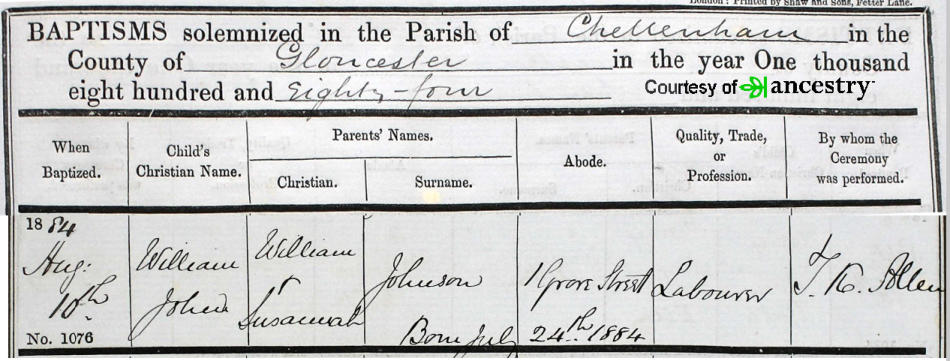 London: Printed by Shaw and Sons, Fetter Lane.
BAPTISMS solemnized in the Parish of Cheltenham in the
County of Gloucester in the year One thousand
eight hundred and Eighty-four
Courtesy of ancestry
When Baptized.
Child's Christian Name.
Parents' Names.
Christian.
Surname.
Abode.
Quality, Trade, or Profession.
By whom the Ceremony was performed.
1884
Aug:
10th
No. 1076
William
John
William
&
Susannah
Johnson
1 Grove Street
Labourer
Born July 24th 1884